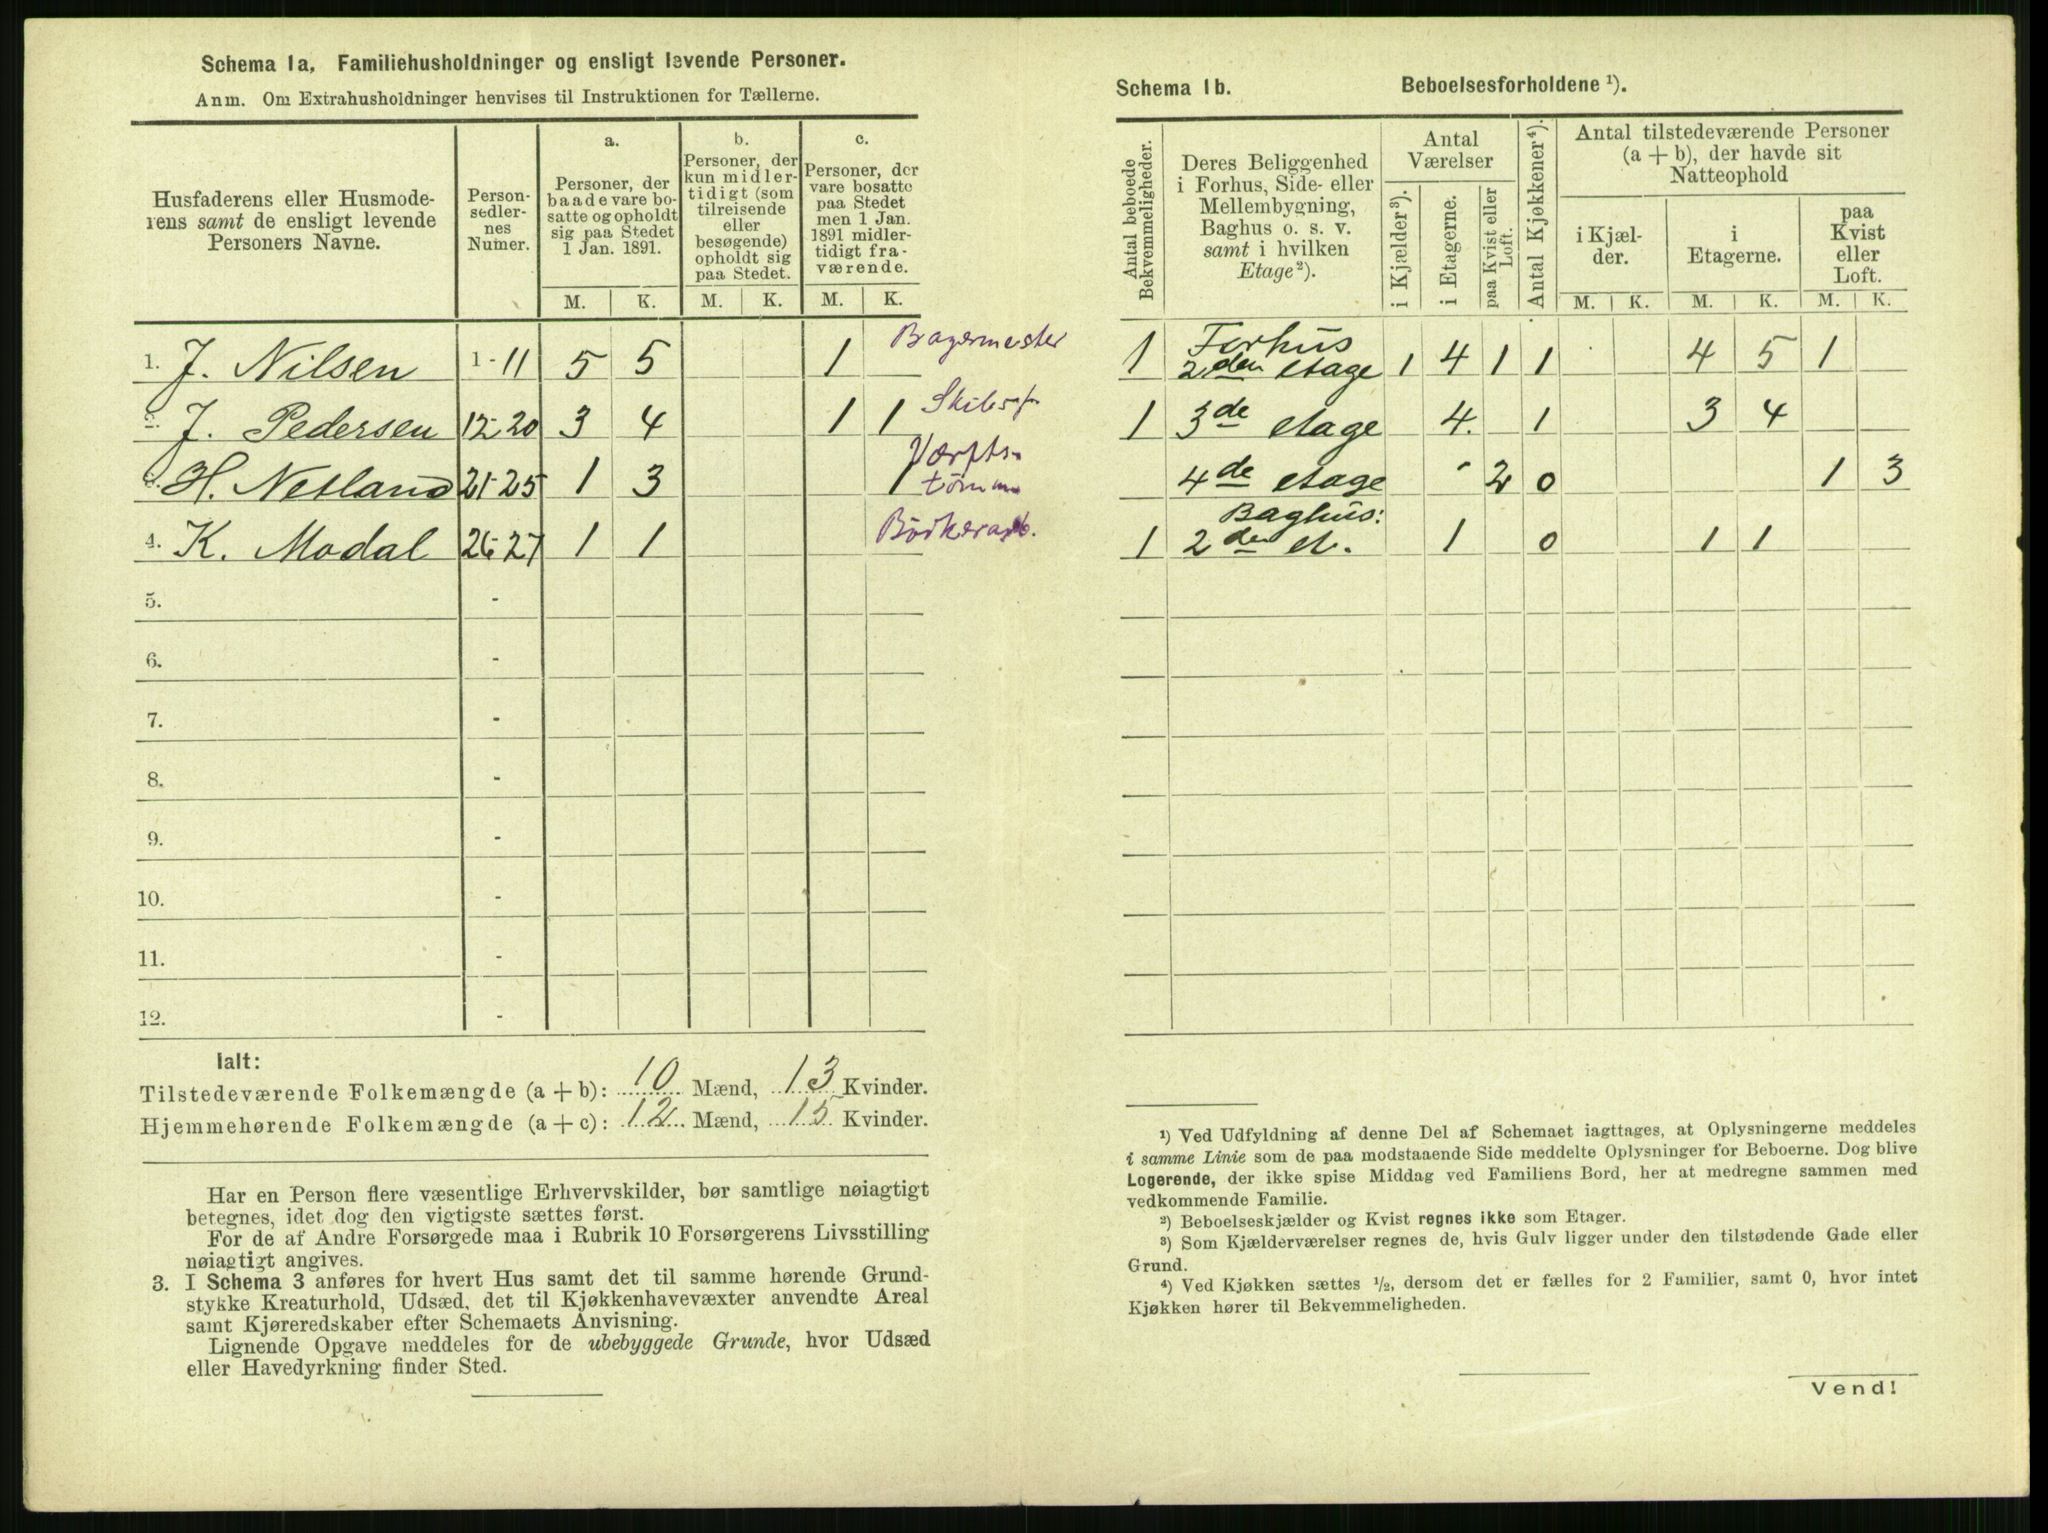 Schema 1a. Familiehusholdninger og ensligt levende Personer.
Anm. Om Extrahusholdninger henvises til Instruktionen for Tællerne.
Husfaderens eller Husmoderens samt de ensligt levende Personers Navne.
Personsedlernes Numer.
a. Personer, der baade vare bosatte og opholdt sig paa Stedet 1 Jan. 1891.
b. Personer, der kun midlertidigt (som tilreisende eller besøgende) opholdt sig paa Stedet.
c. Personer, der vare bosatte paa Stedet men 1 Jan. 1891 midlertidigt fraværende.
M. K. M. K. M. K.
1. J. Nilsen 1-11 5 5 1 Bagermester
2. J. Pedersen 12-20 3 4 1 1
3. H. Netland 21-25 1 3 1 Værfts-
tømm
4. K. Modal 26-27 1 1
5. -
6. -
7. -
8. -
9. -
10. -
11. -
12. -
Ialt:
Tilstedeværende Folkemængde (a + b): 10 Mænd, 13 Kvinder.
Hjemmehørende Folkemængde (a + c): 12 Mænd, 15 Kvinder.
Har en Person flere væsentlige Erhvervskilder, bør samtlige nøiagtigt
betegnes, idet dog den vigtigste sættes først.
For de af Andre Forsørgede maa i Rubrik 10 Forsørgerens Livsstilling
nøiagtigt angives.
3. I Schema 3 anføres for hvert Hus samt det til samme hørende Grund-
stykke Kreaturhold, Udsæd, det til Kjøkkenhavevæxter anvendte Areal
samt Kjøreredskaber efter Schemaets Anvisning.
Lignende Opgave meddeles for de ubebyggede Grunde, hvor Udsæd
eller Havedyrkning finder Sted.
Schema 1b. Beboelsesforholdene ¹).
Antal beboede Bekvemmeligheder.
Deres Beliggenhed i Forhus, Side- eller Mellembygning, Baghus o. s. v. samt i hvilken Etage ²).
Antal Værelser
i Kjælder ³).
i Etagerne.
paa Kvist eller Loft.
Antal Kjøkkener ⁴).
Antal tilstedeværende Personer (a + b), der havde sit Natteophold
i Kjælder.
i Etagerne.
paa Kvist eller Loft.
M. K. M. K. M. K.
1 Forhus
2den etage 1 4 1 1 4 5 1
1 3de etage 4. 1 3 4
4de etage 2 0 1 3
Baghus:
1 2den et. 1 0 1 1
¹) Ved Udfyldning af denne Del af Schemaet iagttages, at Oplysningerne meddeles
i samme Linie som de paa modstaaende Side meddelte Oplysninger for Beboerne. Dog blive
Logerende, der ikke spise Middag ved Familiens Bord, her at medregne sammen med
vedkommende Familie.
²) Beboelseskjælder og Kvist regnes ikke som Etager.
³) Som Kjælderværelser regnes de, hvis Gulv ligger under den tilstødende Gade eller
Grund.
⁴) Ved Kjøkken sættes ½, dersom det er fælles for 2 Familier, samt 0, hvor intet
Kjøkken hører til Bekvemmeligheden.
Vend!